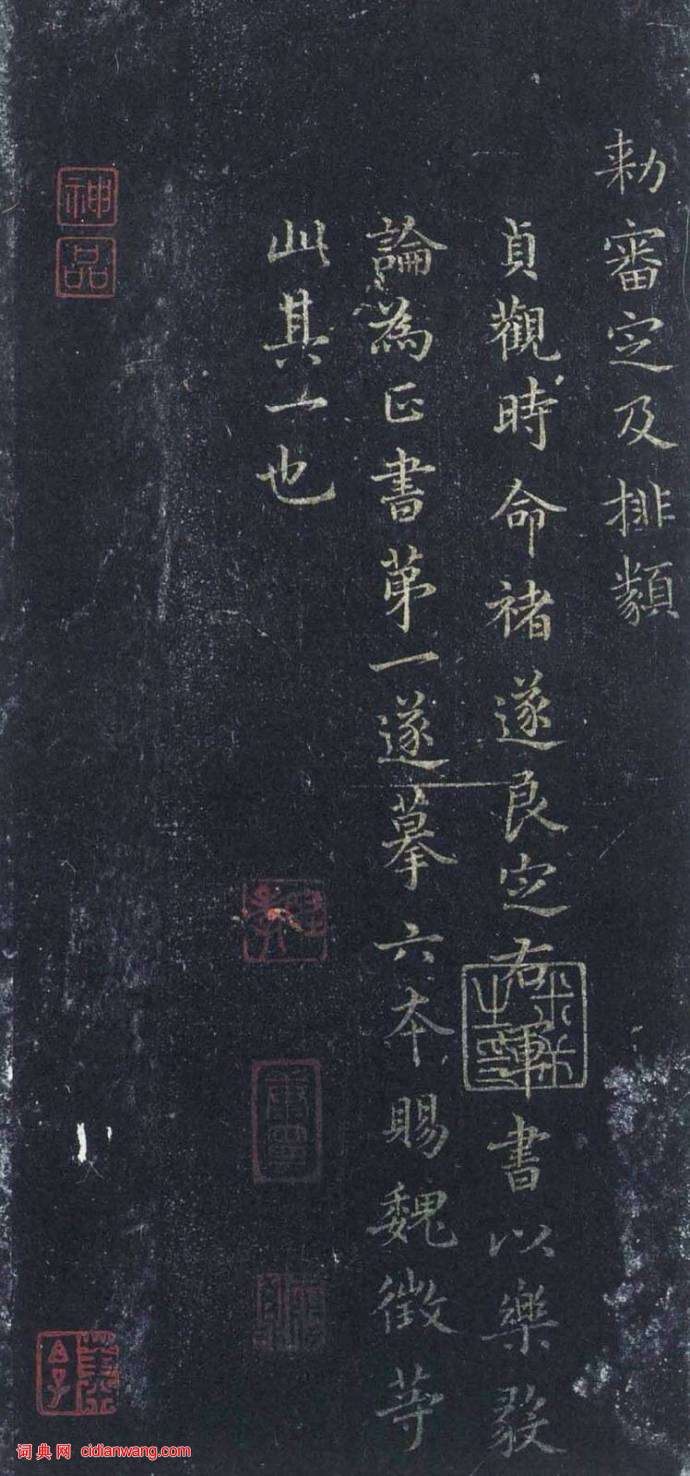 勑審定及排類
貞觀時命褚遂良定右軍書以樂毅
論為正書第一遂摹六本賜魏徵等
此其一也
神品
词典网 cidianwang.com